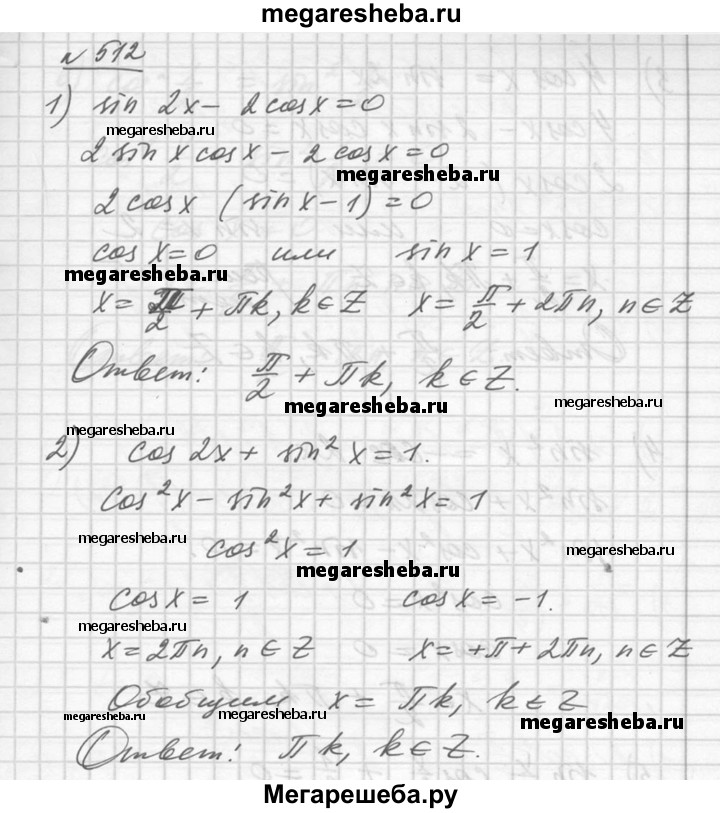 megaresheba.ru
N 512
1) sin 2x - 2cosx = 0
megaresheba.ru
megaresheba.ru
2 sin x cosx - 2 cosx = 0
megaresheba.ru
2 cosx (sin x - 1) = 0
cos x = 0 или sin x = 1
megaresheba.ru
x = π/2 + πk, k ∈ Z x = π/2 + 2πn, n ∈ Z
Ответ: π/2 + πk, k ∈ Z.
megaresheba.ru
megaresheba.ru
megaresheba.ru
2) cos 2x + sin² x = 1.
cos²x - sin²x + sin²x = 1
megaresheba.ru
cos²x = 1
megaresheba.ru
megaresheba.ru
cosx = 1 cosx = -1.
megaresheba.ru
x = 2πn, n ∈ Z x = +π + 2πn, n ∈ Z
Обобщим x = πk, k ∈ Z
megaresheba.ru
megaresheba.ru
megaresheba.ru
Ответ: πk, k ∈ Z.
Мегарешеба.ру